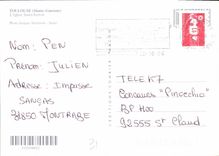 TOULOUSE (Haute-Garonne)
Nom: PEN
Prénom: JULIEN
Adresse: Impasse
SANÇAS
31850 MONTRABE
TELE K7
Concours "Pinocchio"
BP 400
92555 St Cloud